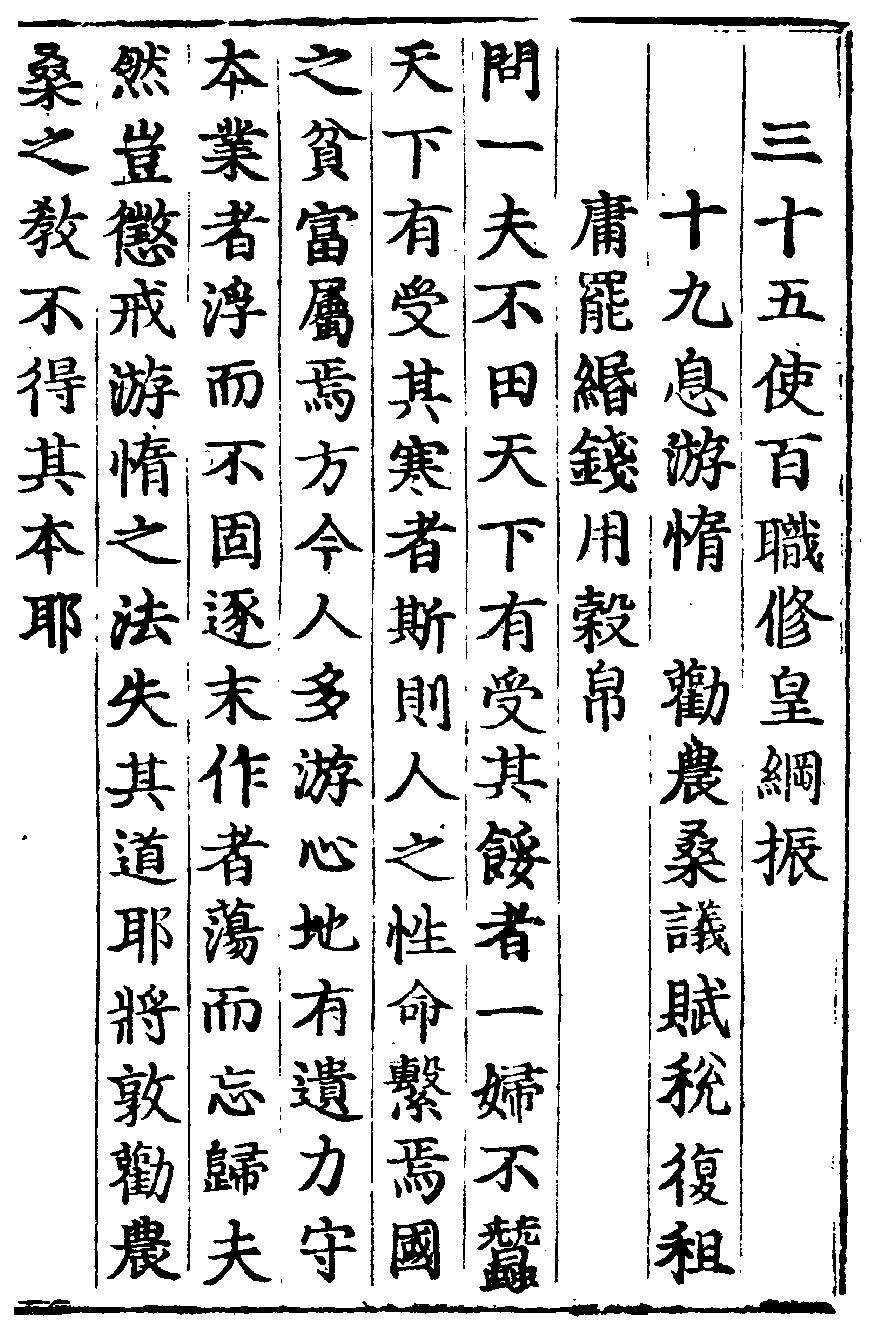 三十五使百職修皇綱振
十九息游惰　勸農桑議賦稅復租
庸罷緡錢用穀帛
問一夫不田天下有受其餒者一婦不蠶
天下有受其寒者斯則人之性命繫焉國
之貧富屬焉方今人多游心地有遺力守
本業者浮而不固逐末作者蕩而忘歸夫
然豈懲戒游惰之法失其道耶將敦勸農
桑之教不得其本耶